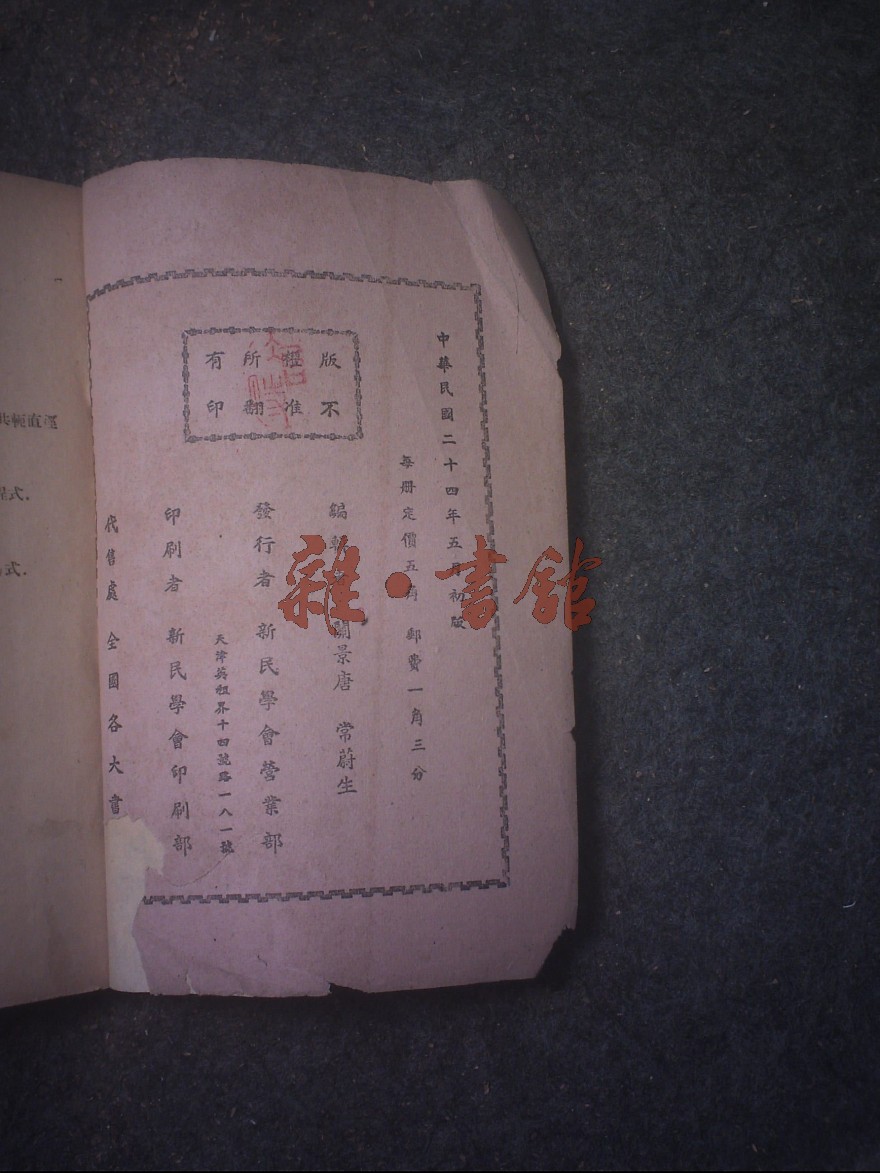 中華民國二十四年五月初版
每冊定價五角 郵費一角三分
版權所有
不准翻印
編輯者 關景唐 常蔚生
發行者 新民學會營業部
天津英租界十四號路一八一號
印刷者 新民學會印刷部
代售處 全國各大書
共軛直徑
程式.
式.
雜·書館